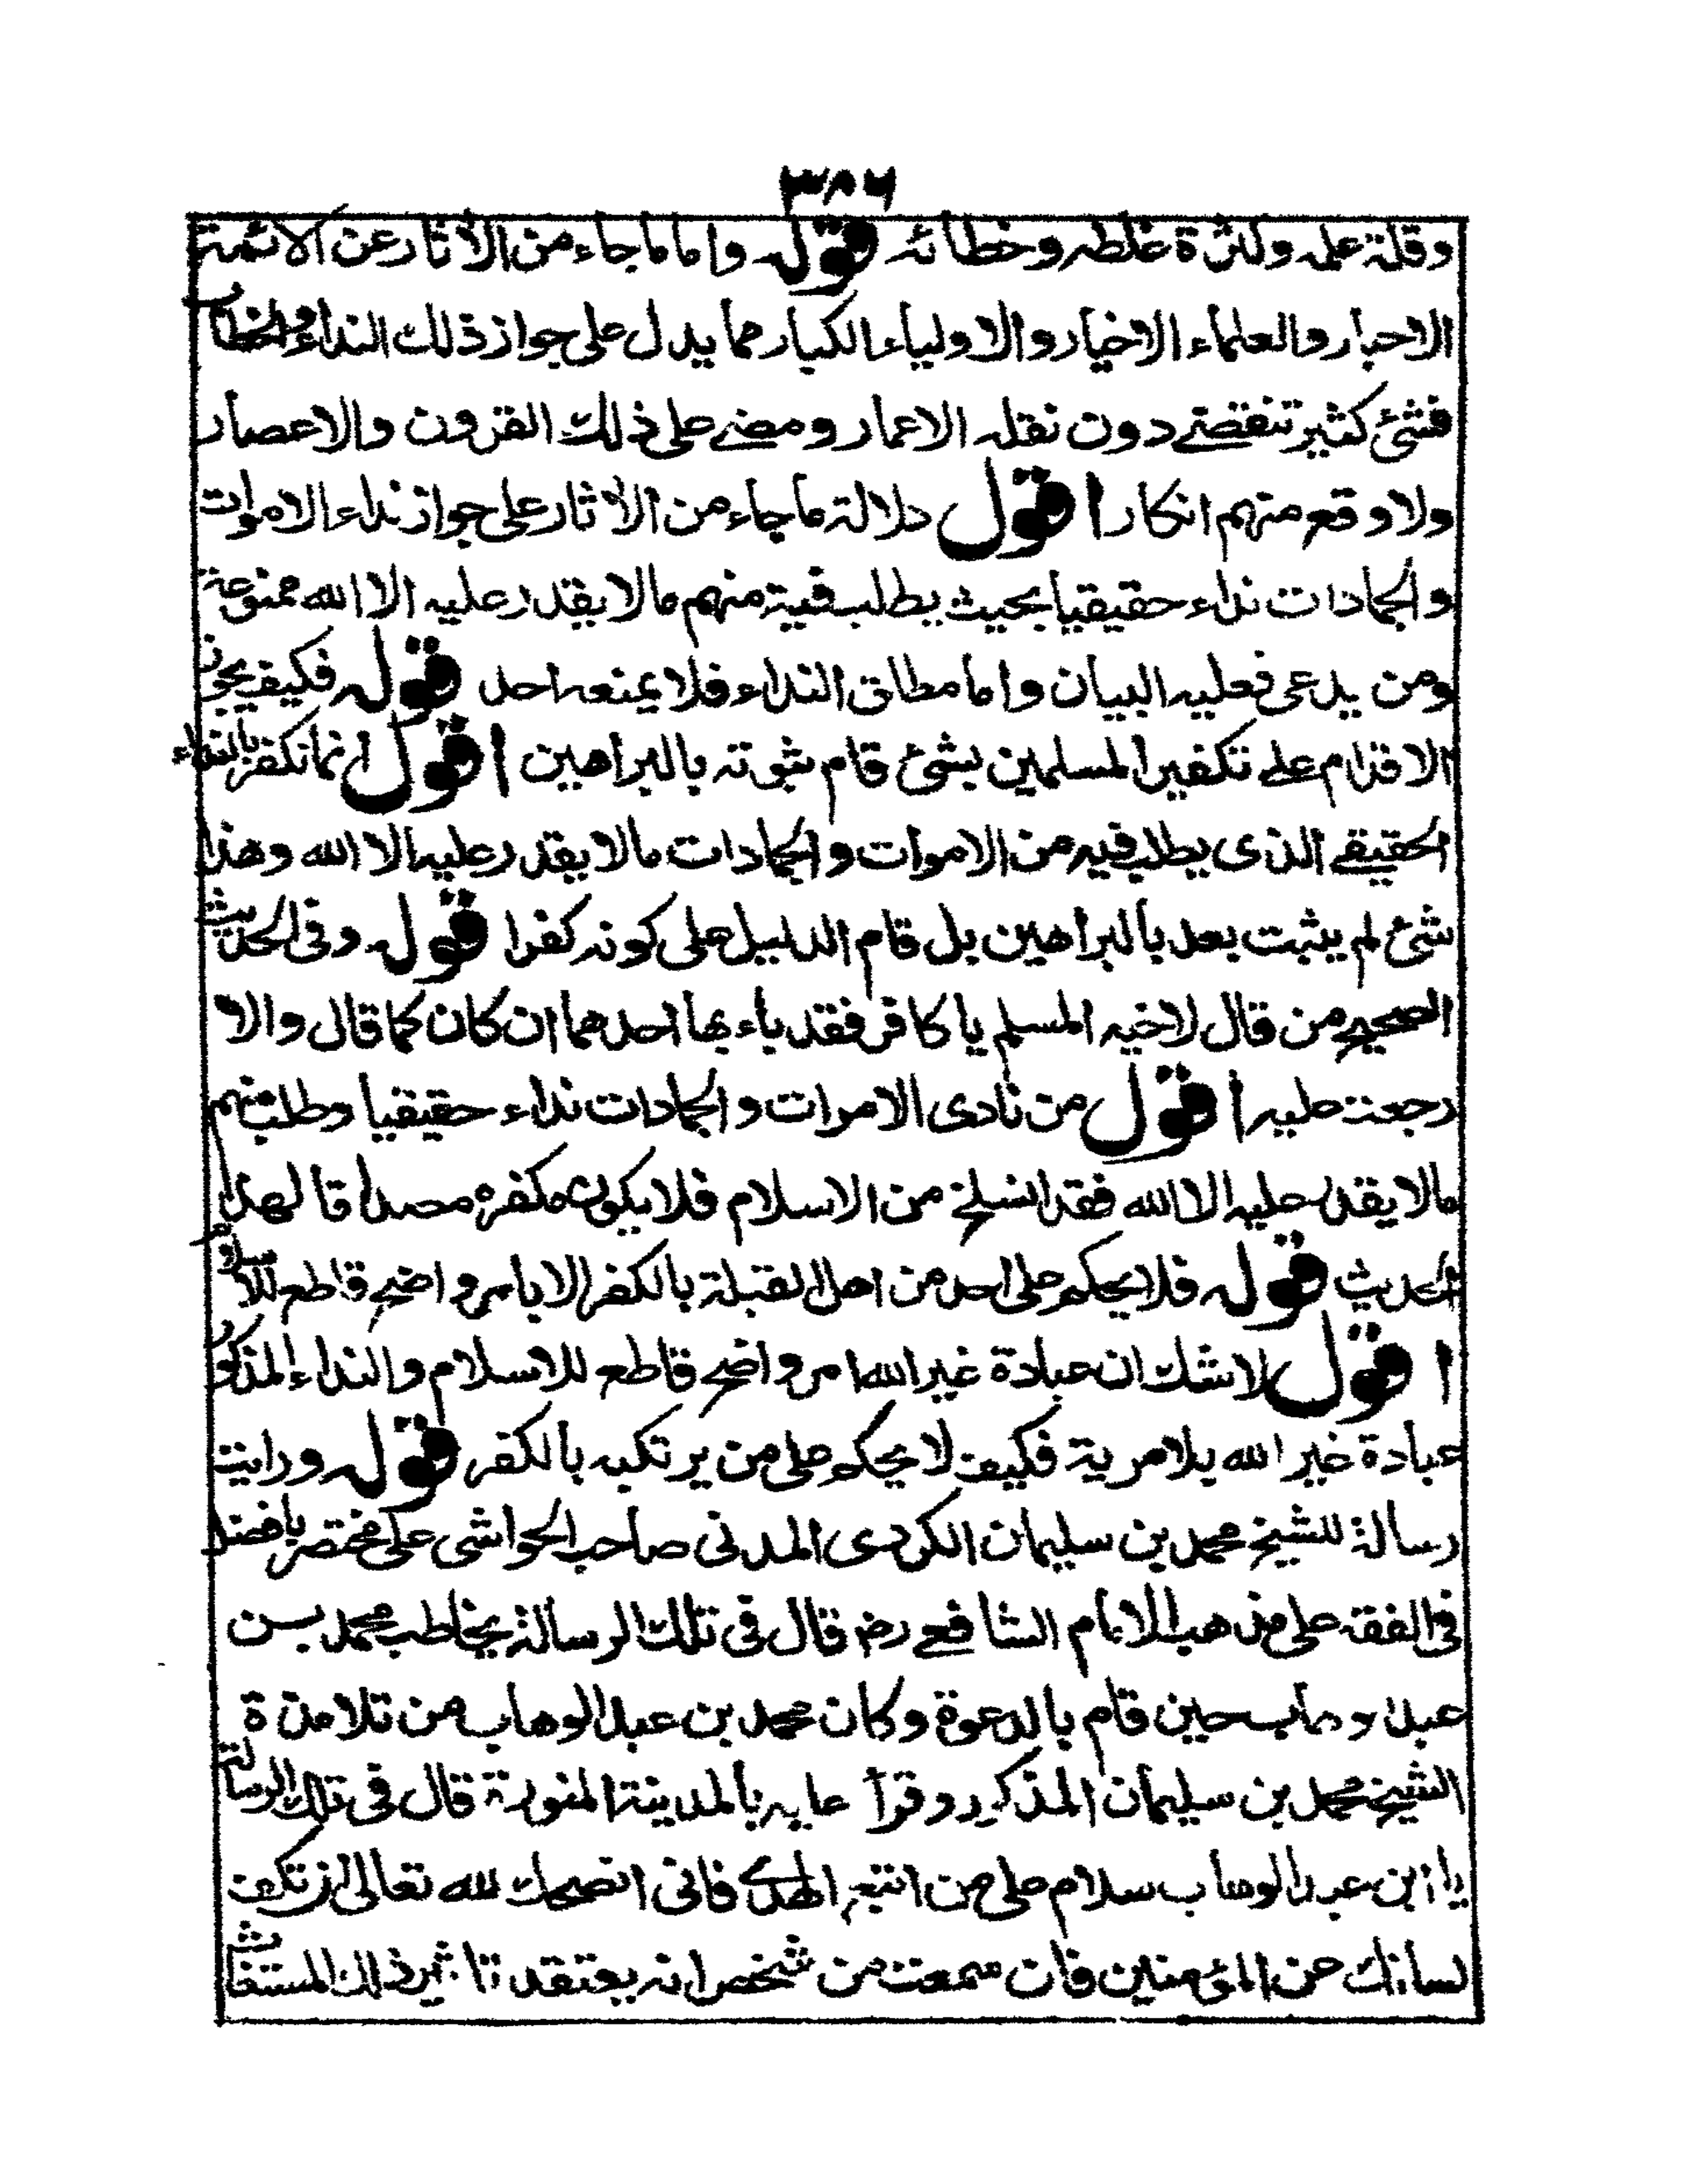 ٣٨٦
وقلة علمه ولكثرة غلطه وخطائه قوله واما ما جاء من الآثار عن الائمة
الاحبار والعلماء الاخيار والاولياء الكبار مما يدل على جواز ذلك النداء والخطاب
فشئ كثير تنقضي دون نقله الاعمار ومضى على ذلك القرون والاعصار
ولا وقع منهم انكار اقول دلالة ما جاء من الآثار على جواز نداء الاموات
والجمادات نداء حقيقيا بحيث يطلب فيه منهم ما لا يقدر عليه الا الله ممنوعة
ومن يدعى فعليه البيان واما مطلق النداء فلا يمنعه احد قوله فكيف يجوز
الاقدام على تكفير المسلمين بشئ قام ثبوته بالبراهين اقول انما نكفر بالنداء
الحقيقي الذى يطلب فيه من الاموات والجمادات ما لا يقدر عليه الا الله وهذا
شئ لم يثبت بعد بالبراهين بل قام الدليل على كونه كفرا قوله وفى الحديث
الصحيح من قال لاخيه المسلم يا كافر فقد باء بها احدهما ان كان كما قال والا
رجعت عليه اقول من نادى الاموات والجمادات نداء حقيقيا وطلب منهم
ما لا يقدر عليه الا الله فقد انسلخ من الاسلام فلا يكون مكفره مصداقا لهذا
الحديث قوله فلا يحكم على احد من اهل القبلة بالكفر الا بامر واضح قاطع للاسلام
اقول لا شك ان عبادة غير الله امر واضح قاطع للاسلام والنداء المذكور
عبادة غير الله بلا مرية فكيف لا يحكم على من يرتكبه بالكفر قوله ورايت
رسالة للشيخ محمد بن سليمان الكردى المدنى صاحب الحواشى على مختصر بافضل
فى الفقه على مذهب الامام الشافعي رضـ قال فى تلك الرسالة يخاطب محمد بن
عبد الوهاب حين قام بالدعوة وكان محمد بن عبد الوهاب من تلامذة
الشيخ محمد بن سليمان المذكور وقرأ عليه بالمدينة المنورة قال فى تلك الرسالة
يا ابن عبد الوهاب سلام على من اتبع الهدى فانى انصحك لله تعالى ان تكف
لسانك عن المؤمنين فان سمعت من شخص انه يعتقد تاثير ذلك المستغاث